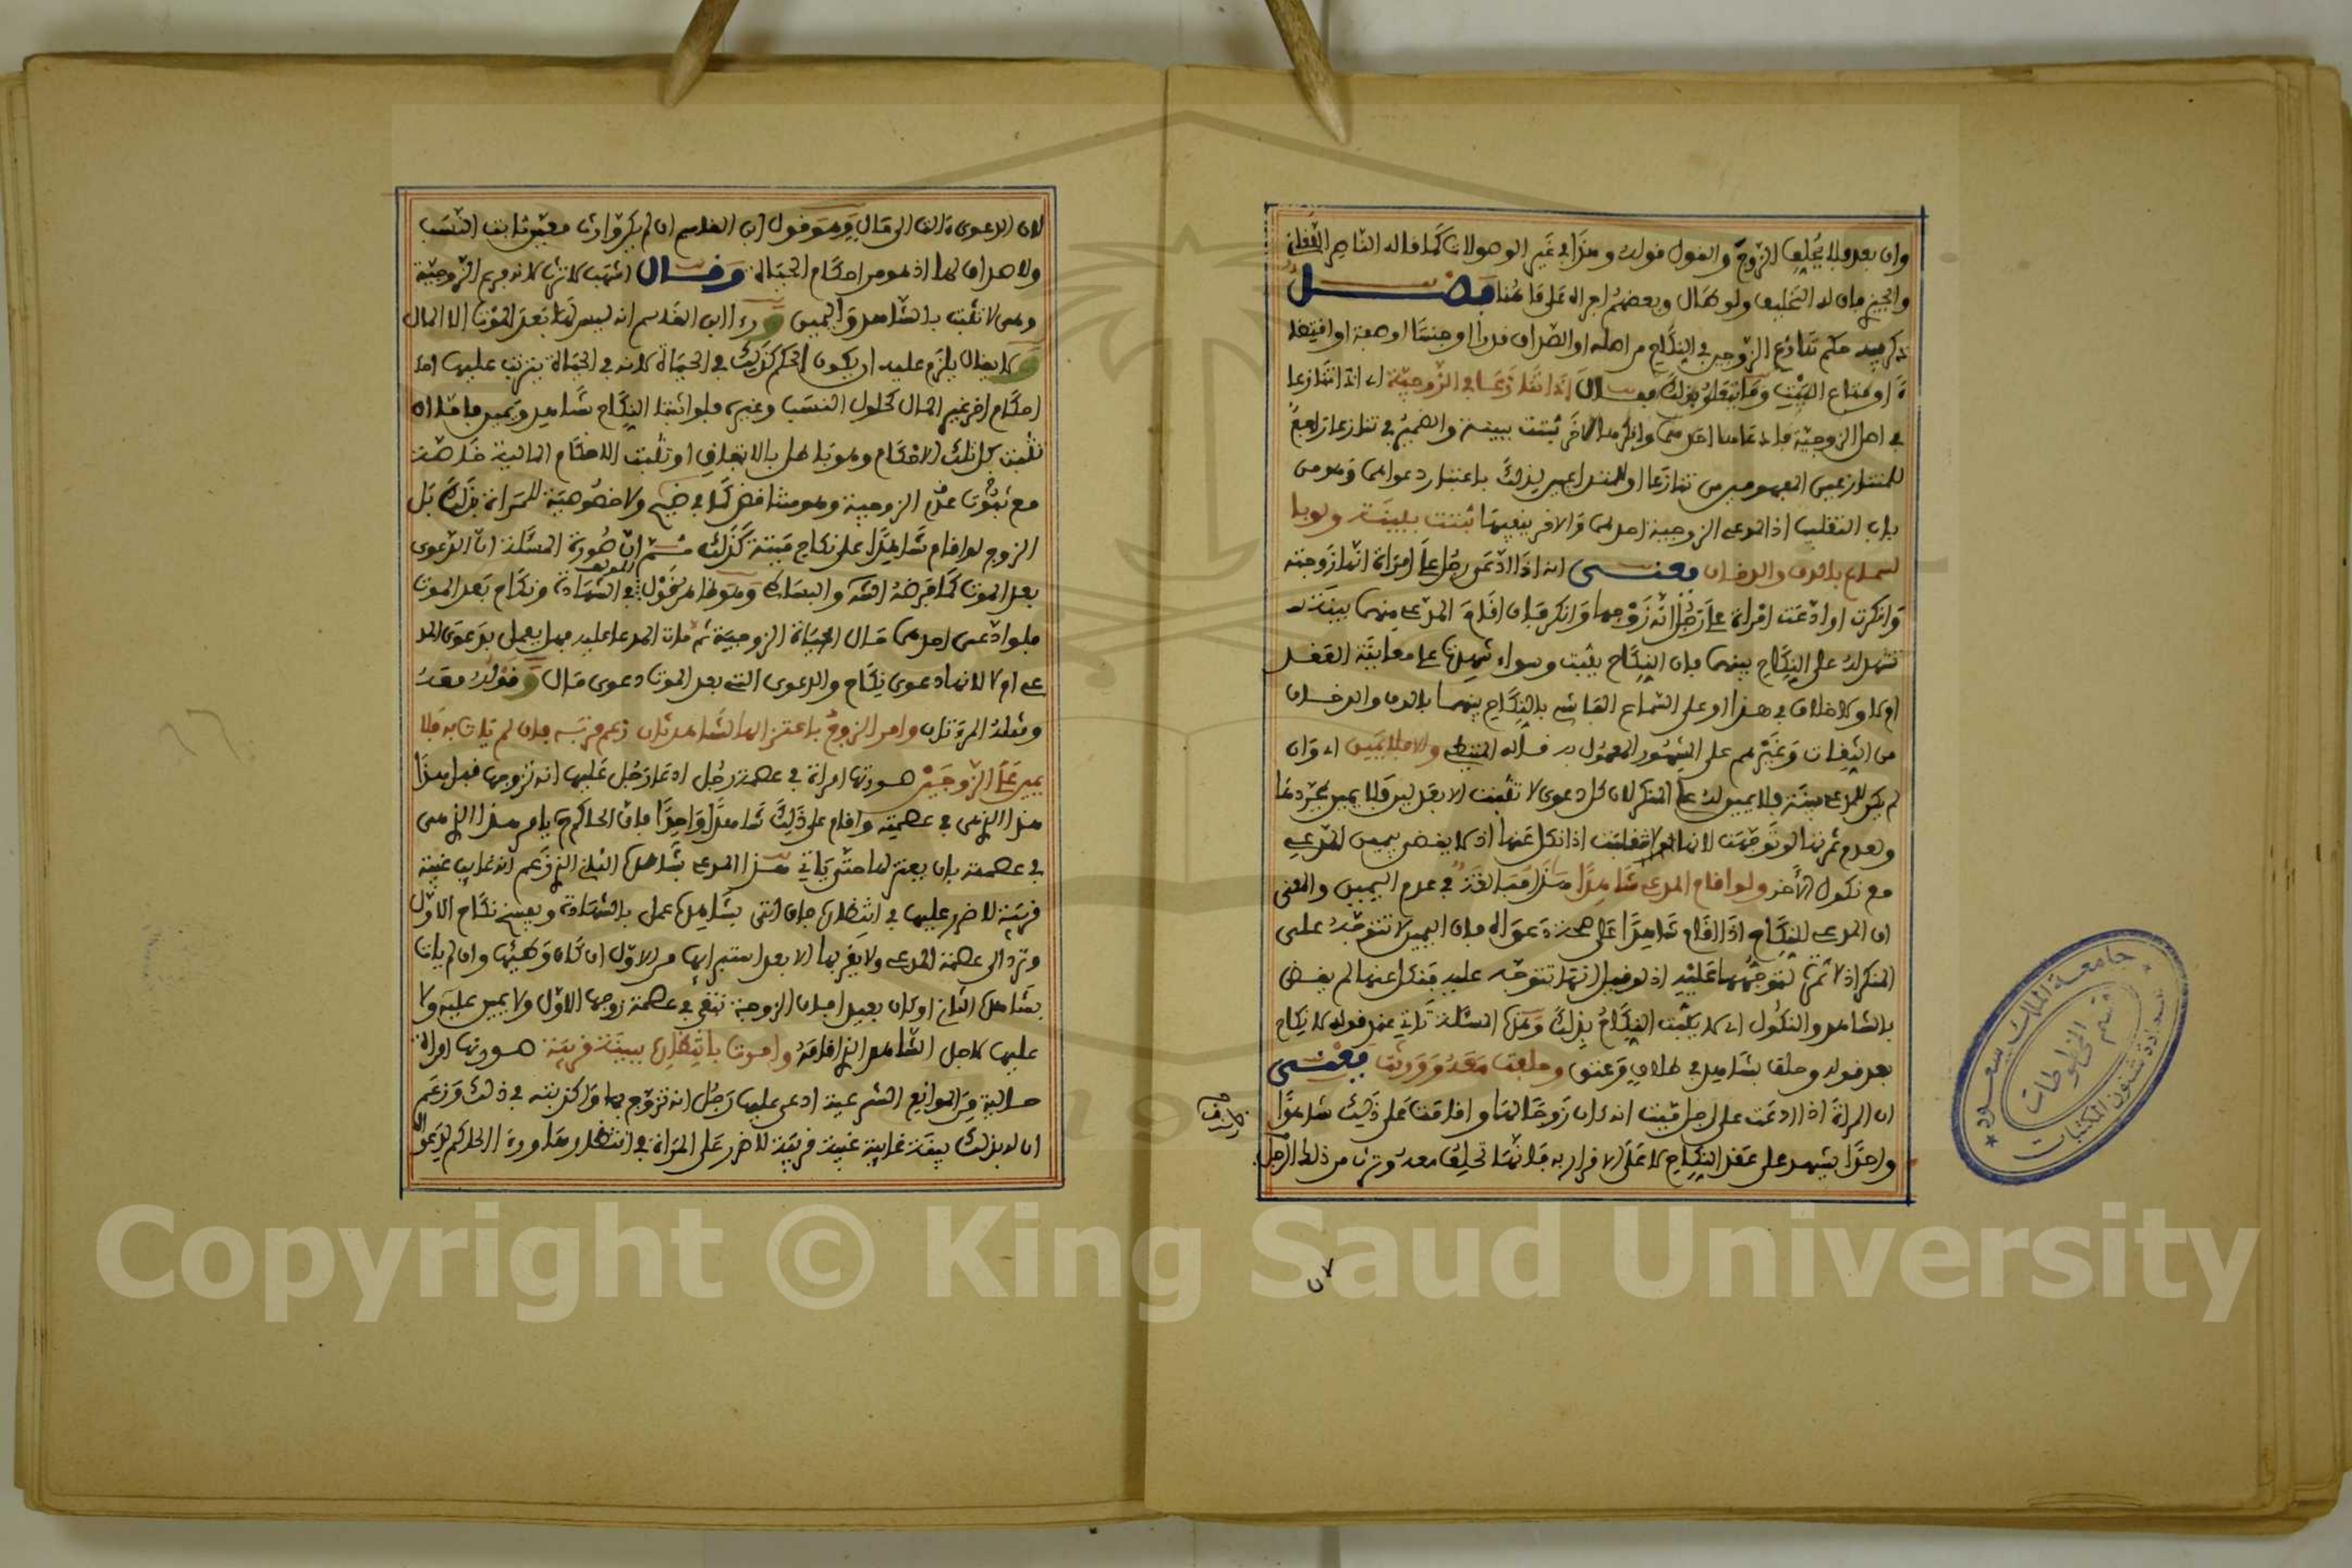 وان بعد فلا يُحلف الزوج والقول قوله وهذا في غير الوصولات كما قاله الناصر اللقاني
والجيزي فان له التحليف ولو طال وبعضهم اجراه على ما هنا فصل
ذكر فيه حكم تنازع الزوجين في النكاح من اصله او الصداق قدرا او جنسا او صفة او اقتضا
ء او متاع البيت وما يتعلق بذلك فقال اذا تنازعا في الزوجية اي اذا تنازعا
في اصل الزوجية فادعاها احدهما وانكرها الاخر ثبتت ببينة والضمير في تنازعا راجع
للمتنازعين المفهومين من تنازعا او للمتداعيين لذلك باعتبار دعواهما وهو من
باب التغليب اذ المدعي الزوجية احدهما والاخر ينفيها ثبتت ببينة ولو با
لسماع بالدف والدخان يعني انه اذا ادعى رجل على امراة انها زوجته
وانكرت او ادعت امراة على رجل انه زوجها وانكر فان اقام المدعي منهما بينة
تشهد له على النكاح بينهما فان النكاح يثبت وسواء شهدت على معاينة العقد
او لا ولا خلاف في هذا او على السماع الفاشي بالنكاح بينهما بالدف والدخان
من الثقات وغيرهم على المشهور المعمول به قاله المتيطي والا فلا يمين اي وان
لم يكن للمدعي بينة فلا يمين له على المنكر لان كل دعوى لا تثبت الا بعدلين فلا يمين بمجردها
ولعدم ثمرتها لو توجهت لانها لا تقلب اذا نكل عنها اذ لا يقضى بيمين المدعي
مع نكول الاخر ولو اقام المدعي شاهدا هذا مبالغة في عدم اليمين والمعنى
ان المدعي للنكاح اذا اقام شاهدا على صحة دعواه فان اليمين لا تتوجه على
المنكر اذ لا ثمرة لتوجهها عليه اذ لو قيل انها تتوجه عليه فنكل عنها لم يقض
بالشاهد والنكول اي لا يثبت النكاح بذلك وهذه المسئلة تاتي عند قوله لا نكاح
بعد قوله وحلف بشاهد في طلاق وعتق وحلفت معه وورثت يعني
ان المراة اذا ادعت على رجل ميت انه كان زوجا لها واقامت على ذلك شاهدا
واحدا يشهد على عقد النكاح لا على الاقرار به فانها تحلف معه وترث من ذلك الرجل
لان الدعوى ءالت الى مال وهو قول ابن القاسم ان لم يكن وارث معين ثابت النسب
ولا صداق لها اذ هو من احكام الحياة وقال اشهب لا ترث لانه فرع الزوجية
وهي لا تثبت بالشاهد واليمين وراى ابن القاسم انه ليس لها بعد الموت الا المال
لا يقال يلزم عليه ان يكون الحكم كذلك في الحياة لانه في الحياة يترتب عليها
احكام اخر غير المال كلحوق النسب وغيره فلو اثبتنا النكاح بشاهد ويمين فاما ان
تثبت كل تلك الاحكام وهو باطل بالاتفاق او تثبت الاحكام المالية خاصة
مع ثبوت عدم الزوجية وهو متناقض كما في ضيح ولا خصوصية للمراة بذلك بل
الزوج لو اقام شاهدا على نكاح ميتة كذلك ثم ان صورة المسئلة ان الدعوى
بعد الموت كما فرضه الشه والبساطي وهو ظاهر قول المولف في الشهادة ونكاح بعد الموت
فلو ادعى احدهما حال الحياة الزوجية ثم مات المدعا عليه فهل يعمل بدعوى المد
عي ام لا لانها دعوى نكاح والدعوى التي بعد الموت دعوى مال وقوله معه
ومثله المرءتان وامر الزوج باعتزالها لشاهد ثان زعم قربه فان لم يات به فلا
يمين على الزوجين صورتها امراة في عصمة رجل ادعا رجل عليها انه تزوجها قبل هذا
هذا الذي في عصمته واقام على ذلك شاهدا واحدا فان الحاكم يامر هذا الذي هي
في عصمته بان يعتزلها حتى ياتي هذا المدعي بشاهده الثاني الذي زعم انه غايب غيبة
قريبة لا ضرر عليها في انتظاره فان اتى بشاهده عمل بالشهادة ويفسخ نكاح الاول
وترد الى عصمة المدعي ولا يقربها الا بعد استبرايها من الاول ان كان وطيها وان لم يات
بشاهده الثاني او كان بعيدا فان الزوجة تبقى في عصمة زوجها الاول ولا يمين عليه ولا
عليها لاجل الشاهد الذي اقامه وامرت بانتظاره لبينة قريبة صورتها امراة
خالية من الموانع الشرعية ادعى عليها رجل انه تزوج بها واكذبته في ذلك وزعم
ان له بذلك بينة غايبة غيبة قريبة لا ضرر على المراة في انتظارها وراى الحاكم لدعواه
٥٧
جامعة الملك سعود
قسم المخطوطات
عمادة شئون المكتبات
Copyright © King Saud University